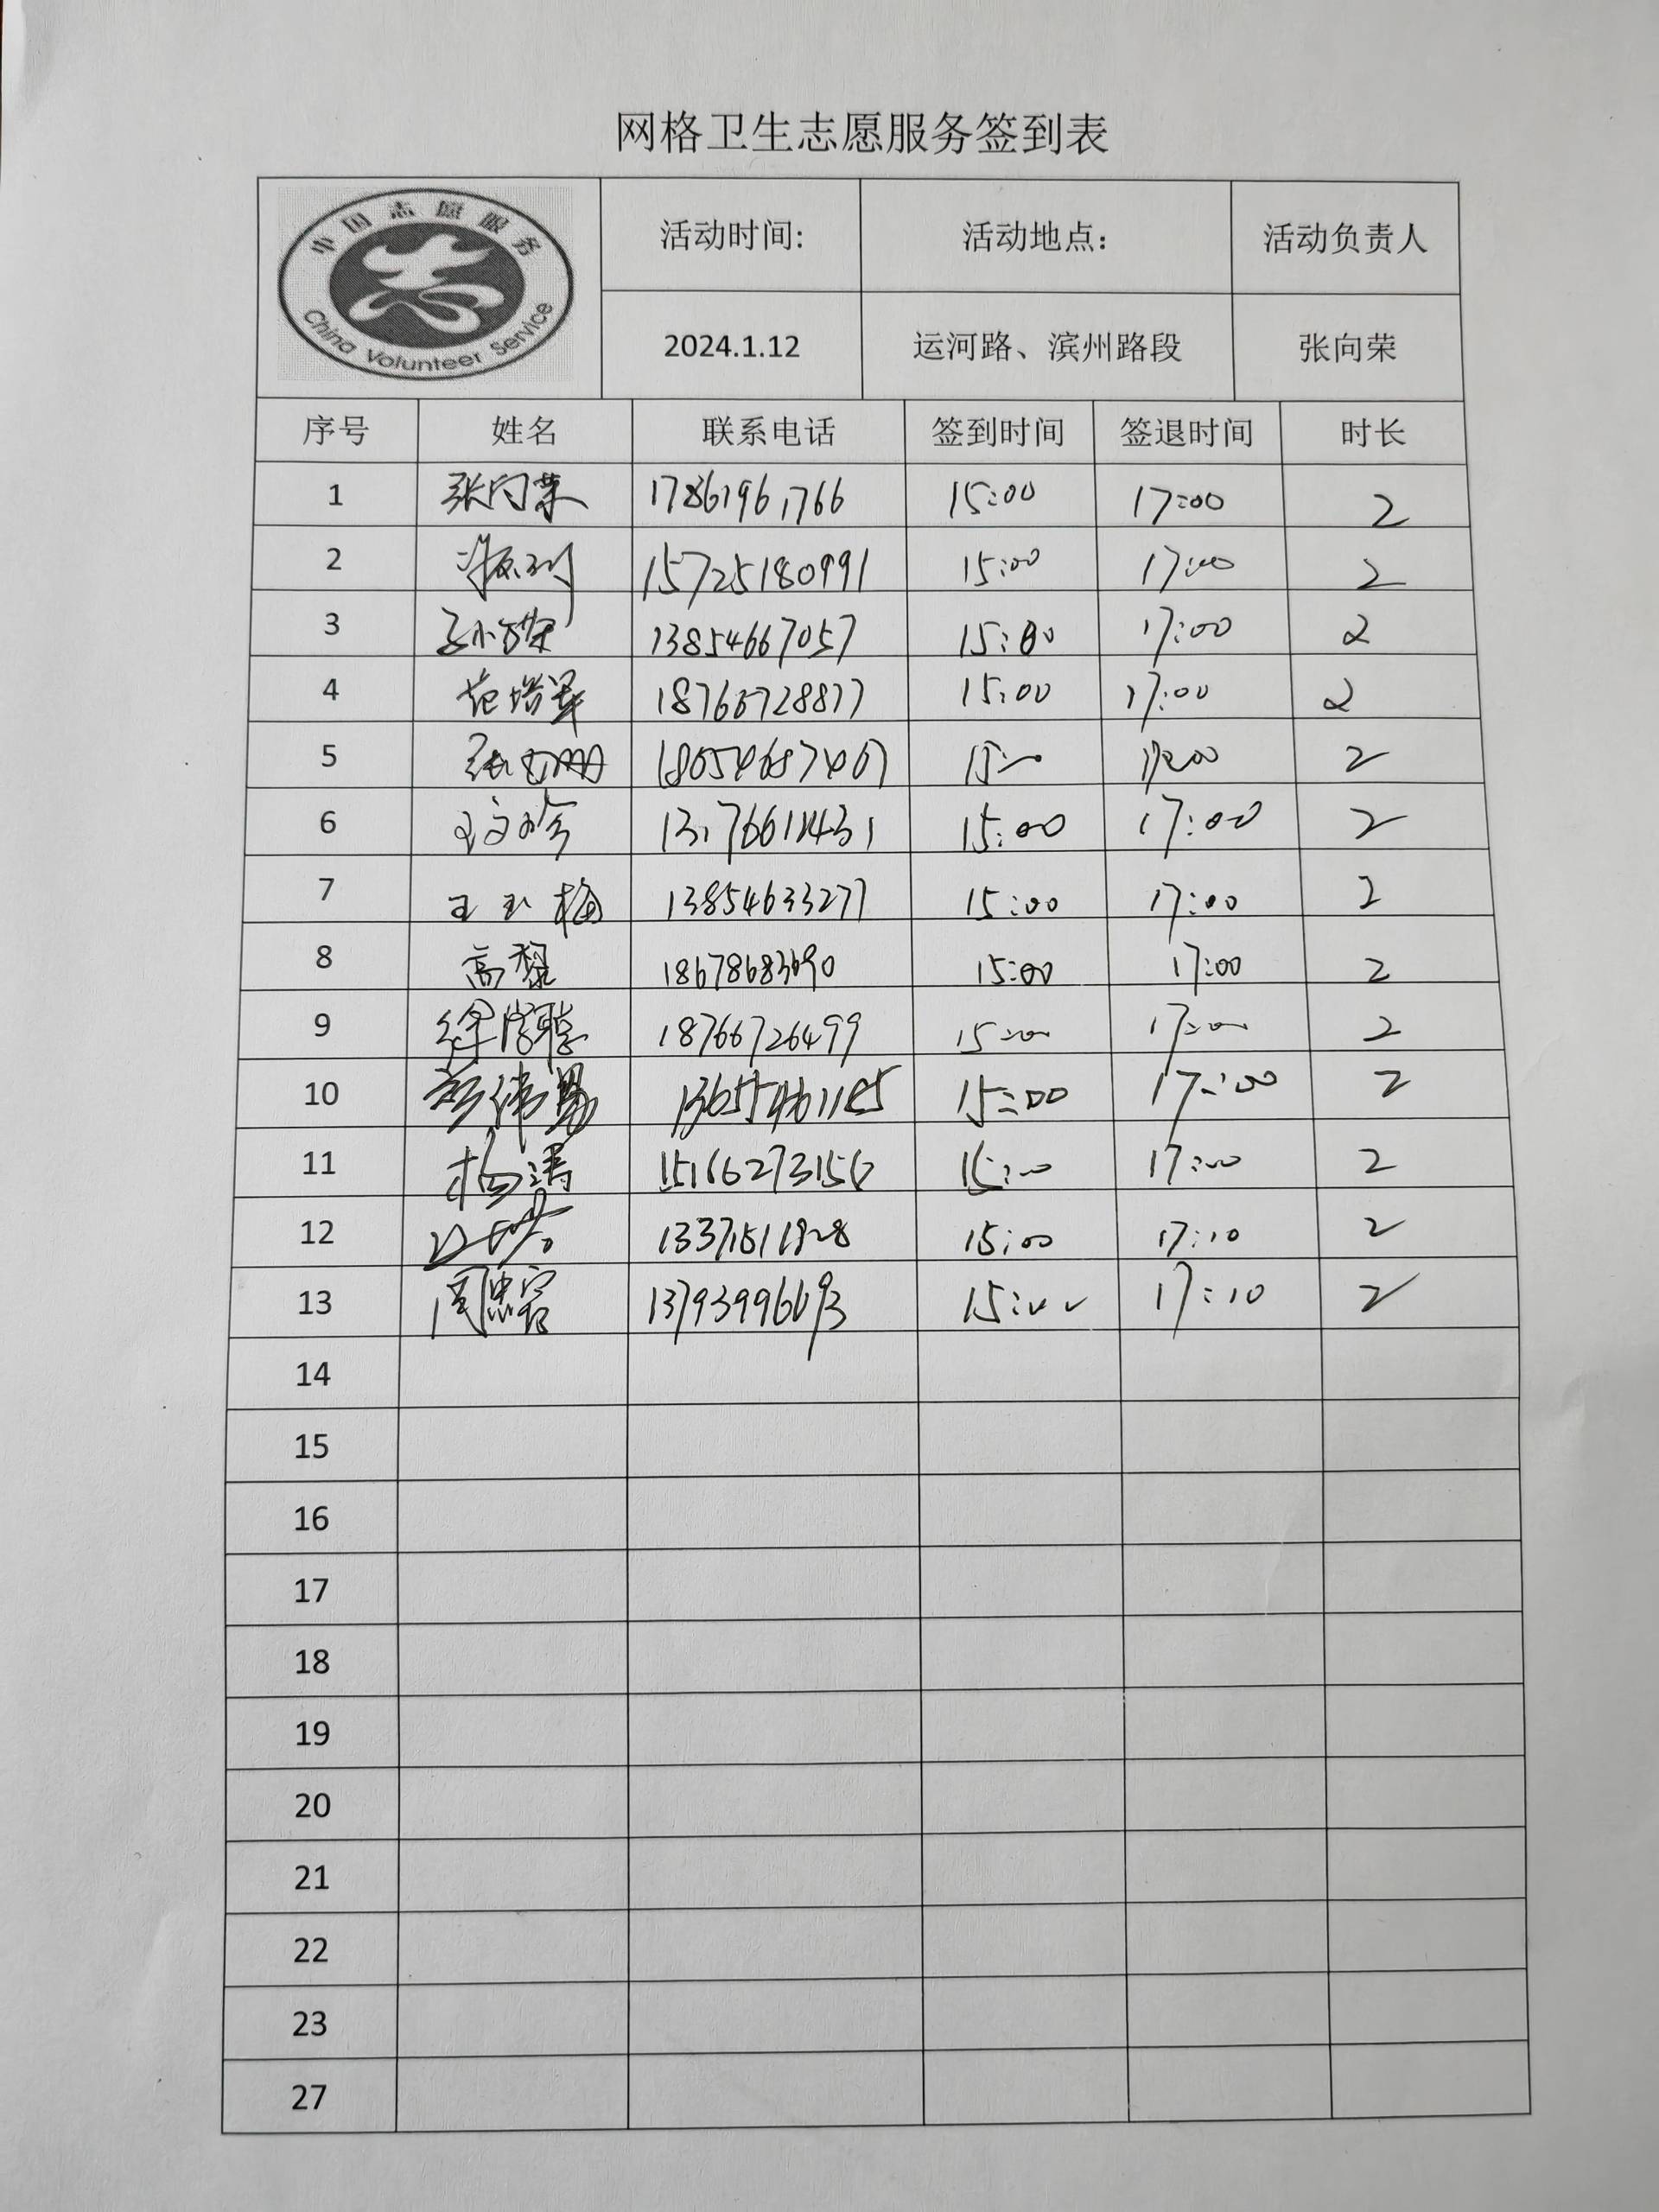 网格卫生志愿服务签到表
中国志愿服务
China Volunteer Service
活动时间: 活动地点: 活动负责人
2024.1.12 运河路、滨州路段 张向荣
序号 姓名 联系电话 签到时间 签退时间 时长
1 张向荣 17861961766 15:00 17:00 2
2 15725180991 15:00 17:00 2
3 13854667057 15:00 17:00 2
4 范增军 18766728877 15:00 17:00 2
5 2
6 王文珍 15:00 17:00 2
7 王玉梅 13854633277 15:00 17:00 2
8 高黎 18678683690 15:00 17:00 2
9 18766726499 15:00 17:00 2
10 15:00 17:00 2
11 杨涛 15:00 17:00 2
12 15:00 17:10 2
13 15:00 17:10 2
14
15
16
17
18
19
20
21
22
23
27